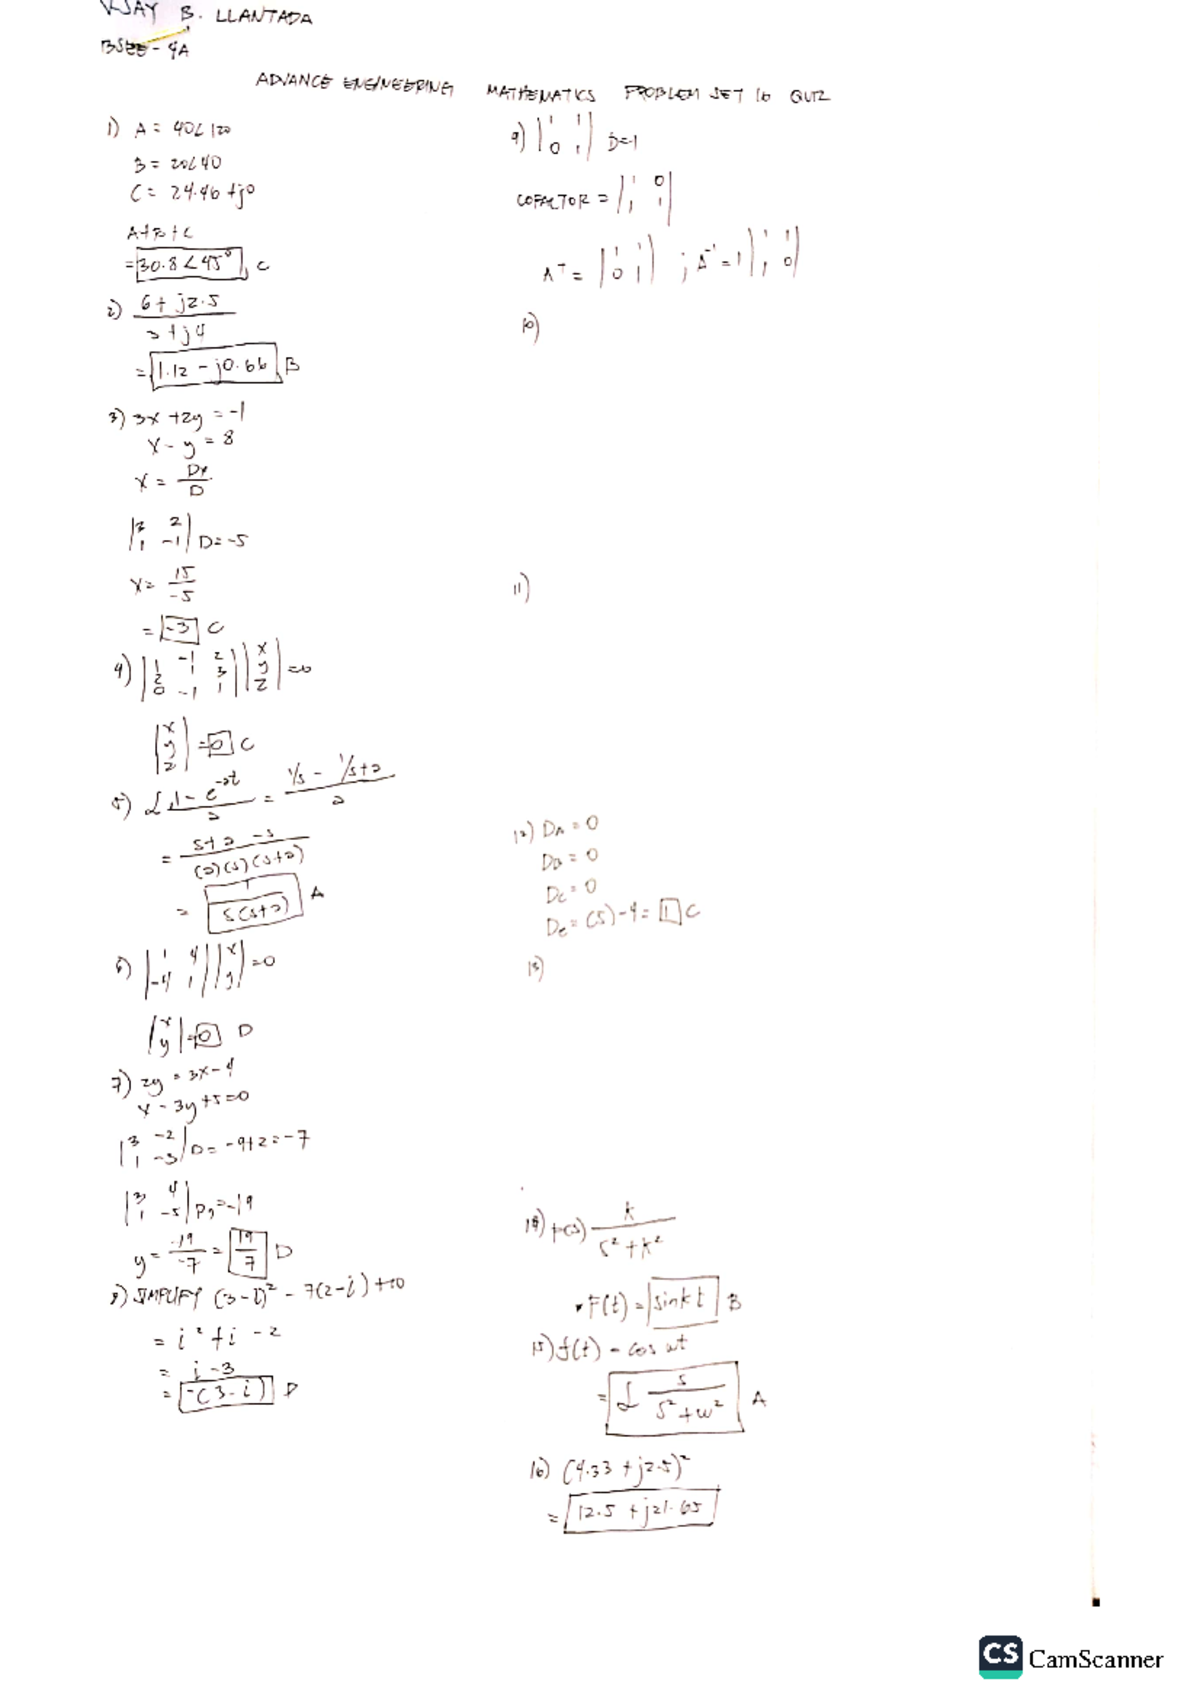 VJAY B. LLANTADA
BSEE - 4A
ADVANCE ENGINEERING MATHEMATICS PROBLEM SET 16 QUIZ
1) A = 40∠120
B = 20∠40
C = 24.46 + j0
A+B+C
= 30.8∠45°, C
2) 6 + j2.5
3 + j4
= 1.12 - j0.66 B
3) 3x + 2y = -1
x - y = 8
x = Dx
D
|3 2|
|1 -1| D = -5
x = 15
-5
= -3 C
4) |1 -1 2| |x|
|2 1 3| |y| = 0
|0 -1 1| |z|
|x|
|y| = 0 C
|z|
5) ℒ 1 - e^-2t = 1/s - 1/s+2
2 2
= s+2 - s
(2)(s)(s+2)
= 1
s(s+2) A
6) |1 4| |x|
|-4 1| |y| = 0
|x|
|y| = 0 D
7) 2y = 3x - 4
x - 3y + 5 = 0
|3 -2|
|1 -3| D = -9+2 = -7
|3 4|
|1 -5| Dy = -19
y = -19 = 19
-7 7 D
8) SIMPLIFY (3-i)² - 7(2-i) + 10
= i² + i - 2
= i - 3
= -(3-i) D
9) |1 1|
|0 1| D=1
COFACTOR = |1 0|
|1 1|
A^T = |1 1| ; A^-1 = 1 |1 1|
|0 1| |1 0|
10)
11)
12) DA = 0
DB = 0
DC = 0
De = (5) - 4 = 1 C
13)
14) F(s) k
s² + k²
F(t) = sinkt B
15) f(t) = cos wt
= ℒ s
s² + w² A
16) (4.33 + j2.5)²
= 12.5 + j21.65
CS CamScanner